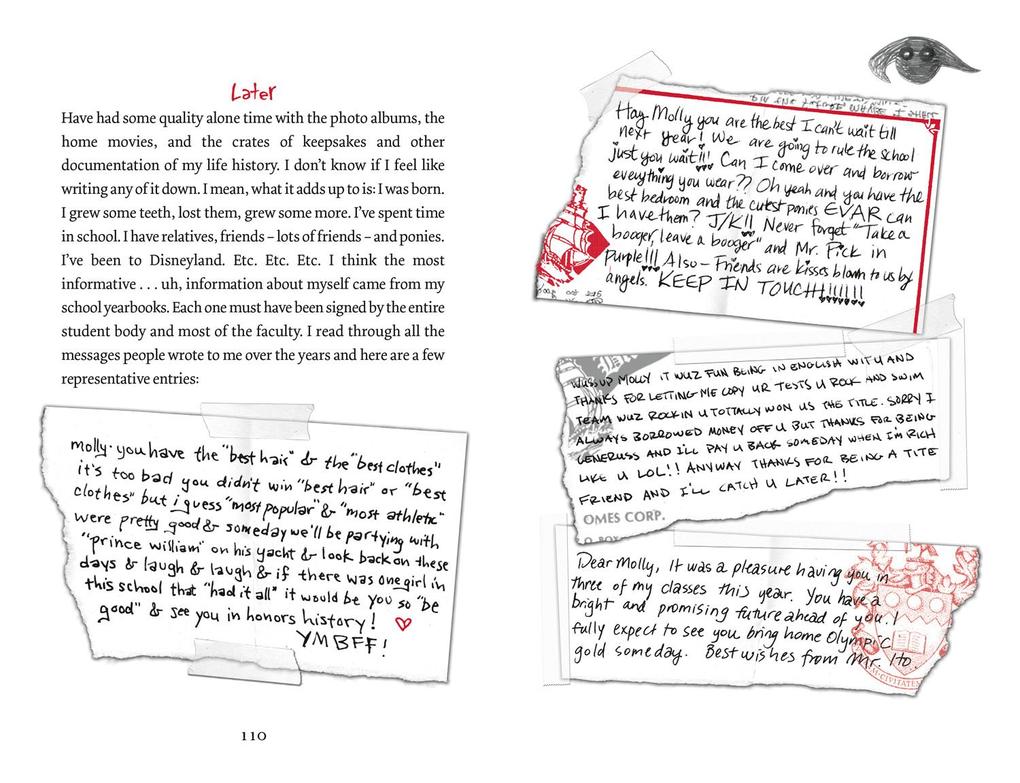 Later
Have had some quality alone time with the photo albums, the
home movies, and the crates of keepsakes and other
documentation of my life history. I don't know if I feel like
writing any of it down. I mean, what it adds up to is: I was born.
I grew some teeth, lost them, grew some more. I've spent time
in school. I have relatives, friends – lots of friends – and ponies.
I've been to Disneyland. Etc. Etc. Etc. I think the most
informative . . . uh, information about myself came from my
school yearbooks. Each one must have been signed by the entire
student body and most of the faculty. I read through all the
messages people wrote to me over the years and here are a few
representative entries:
molly. you have the "best hair" & the "best clothes"
it's too bad you didn't win "best hair" or "best
clothes" but i guess "most popular" & "most athletic"
were pretty good & someday we'll be partying with
"prince william" on his yacht & look back on these
days & laugh & laugh & if there was one girl in
this school that "had it all" it would be you so "be
good" & see you in honors history!
YMBFF!
110
Hay Molly you are the best I can't wait till
next year! We are going to rule the school
just you wait!!! Can I come over and borrow
everything you wear?? Oh yeah and you have the
best bedroom and the cutest ponies EVAR can
I have them? J/K!! Never forget "Take a
booger, leave a booger" and Mr. Pick in
Purple!!! Also – Friends are kisses blown to us by
angels. KEEP IN TOUCH!!!!!!!
WUSSUP MOLLY IT WUZ FUN BEING IN ENGLISH WIT U AND
THANKS FOR LETTING ME COPY UR TESTS U ROCK AND SWIM
TEAM WUZ ROCKIN U TOTTALLY WON US THE TITLE. SORRY I
ALWAYS BORROWED MONEY OFF U BUT THANKS FOR BEING
GENERUSS AND I'LL PAY U BACK SOMEDAY WHEN I'M RICH
LIKE U LOL!! ANYWAY THANKS FOR BEING A TITE
FRIEND AND I'LL CATCH U LATER!!
OMES CORP.
Dear Molly, It was a pleasure having you in
three of my classes this year. You have a
bright and promising future ahead of you. I
fully expect to see you bring home Olympic
gold someday. Best wishes from Mr. Ito.